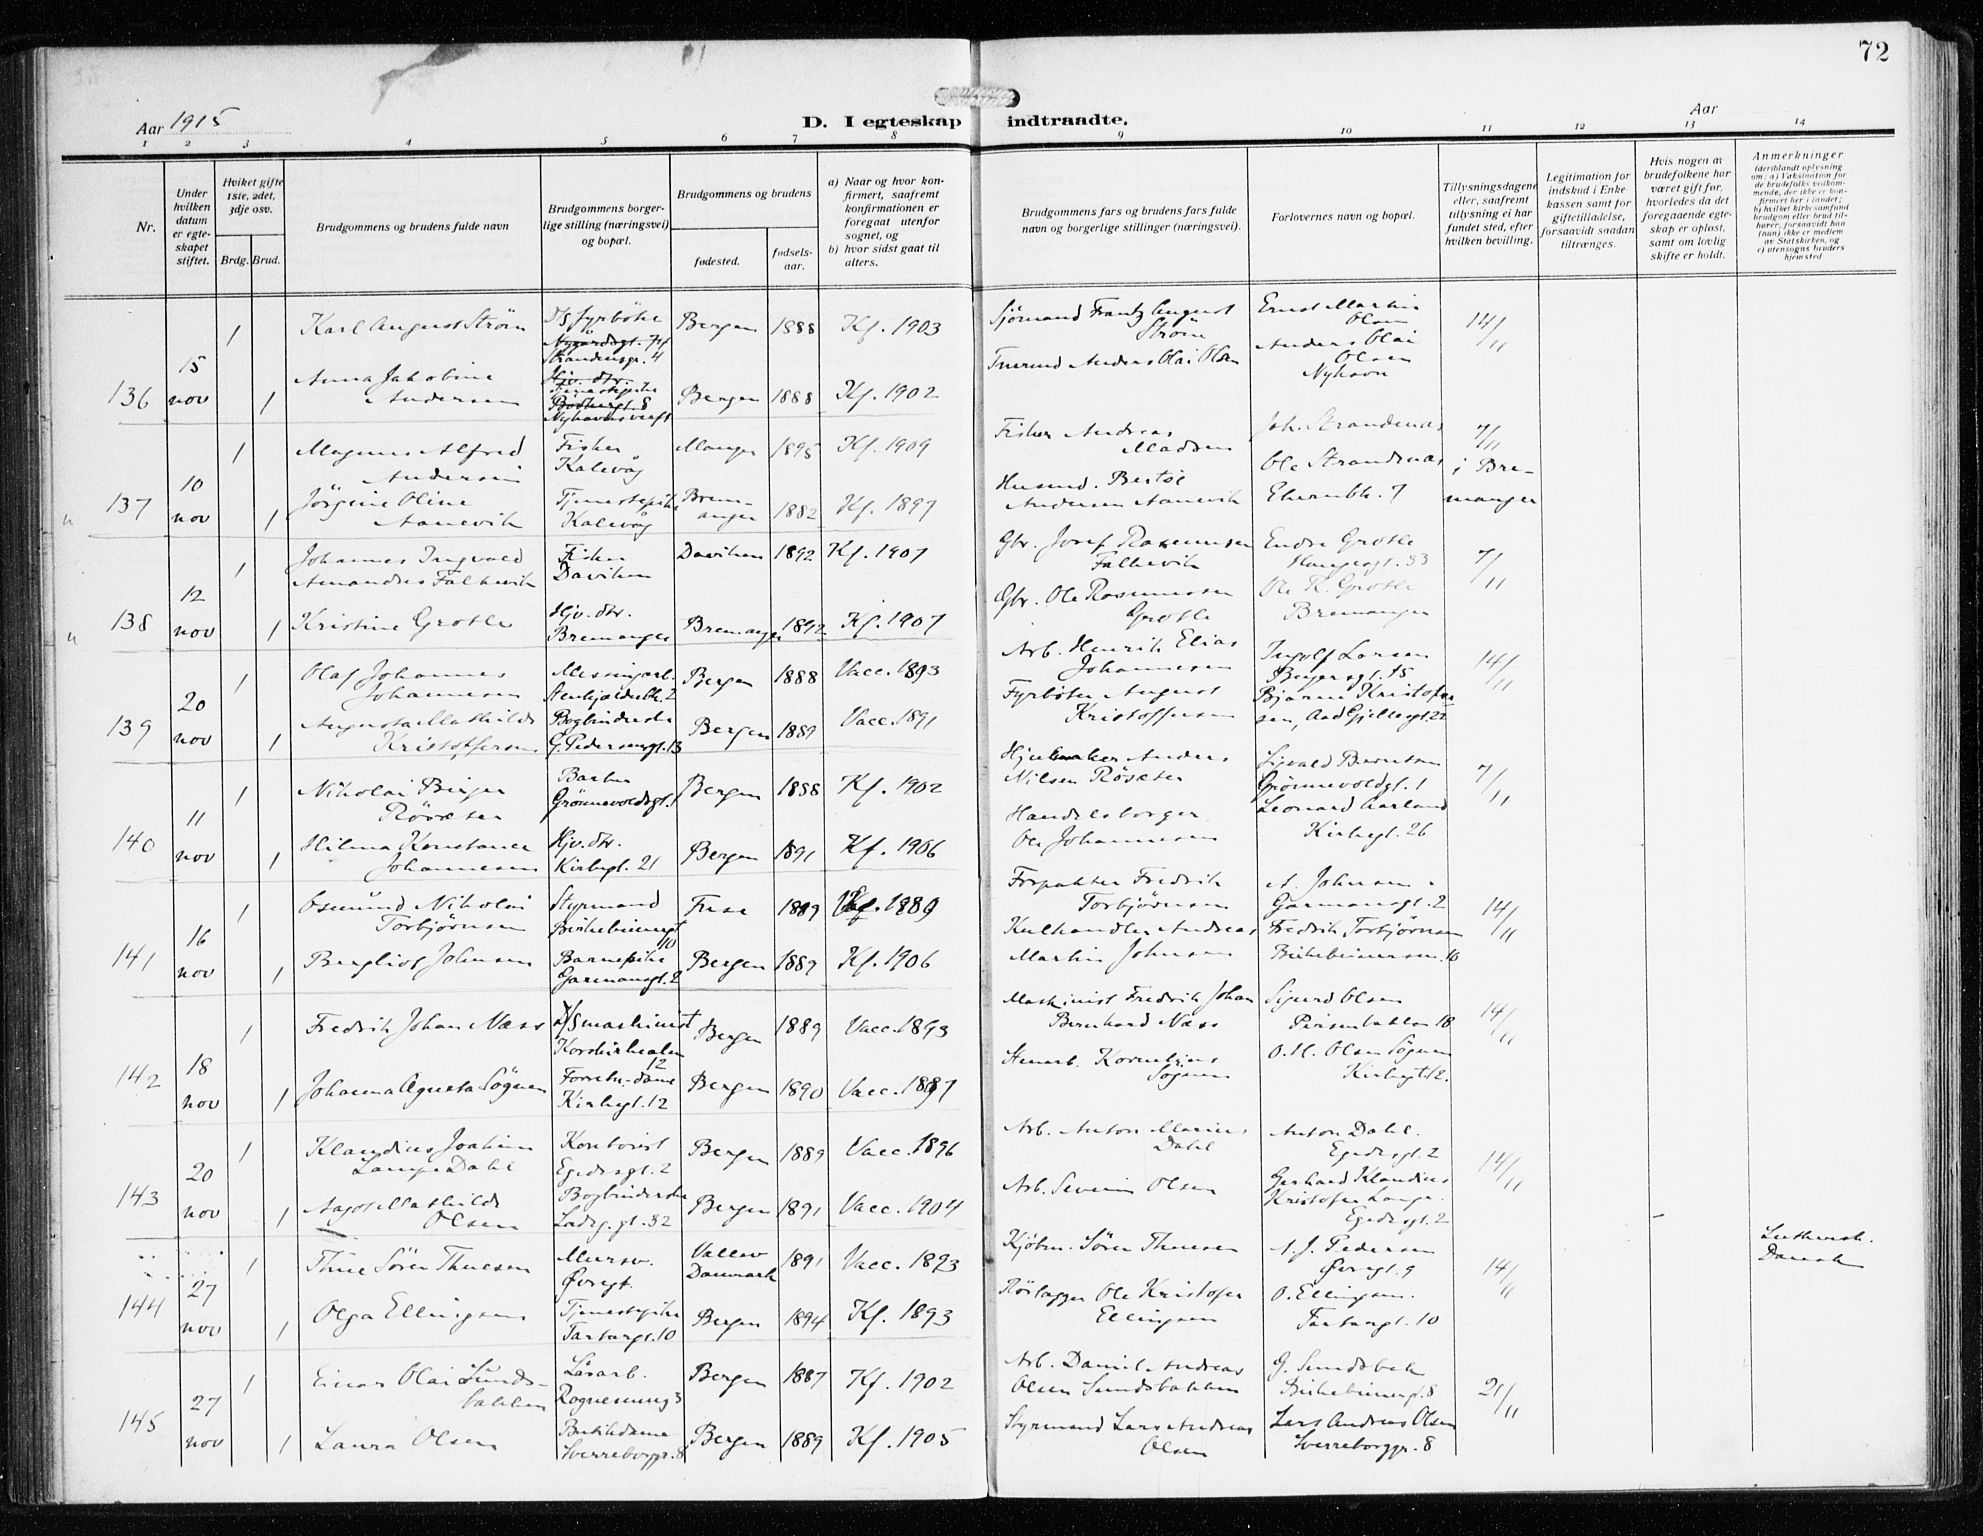 72
Aar 1915
D. I egteskap indtraadte.
Aar
1 2 3 4 5 6 7 8 9 10 11 12 13 14
Nr.
Under hvilken datum er egteskapet stiftet.
Hviket gifte 1ste, 2det, 3dje osv.
Brdg. Brud.
Brudgommens og brudens fulde navn
Brudgommens borgerlige stilling (næringsvei) og bopæl.
Brudgommens og brudens
fødested.
fødselsaar.
a) Naar og hvor konfirmert, saafremt konfirmationen er foregaat utenfor sognet, og
b) hvor sidst gaat til alters.
Brudgommens fars og brudens fars fulde navn og borgerlige stillinger (næringsvei).
Forlovernes navn og bopæl.
Tillysningsdagene eller, saafremt tillysning ei har fundet sted, efter hvilken bevilling.
Legitimation for indskud i Enkekassen samt for giftetilladelse, forsaavidt saadan tiltrænges.
Hvis nogen av brudefolkene har været gift før, hvorledes da det foregaaende egteskap er opløst, samt om lovlig skifte er holdt.
Anmerkninger
(deriblandt oplysning om: a) Vaksination for de brudefolks vedkommende, der ikke er konfirmert her i landet; b) hvilket kirkesamfund brudgom eller brud tilhører, forsaavidt han (hun) ikke er medlem av Statskirken, og c) utensogns bruders hjemsted
136 15 nov
1 Karl August Strøm D/S fyrbøter Nygårdsgt. 74 Strandensgr. 4 Bergen 1888 Kf. 1903 Sjömand Frantz August Strøm Ernst Martin Olsen 14/11
1 Anna Jakobine Andersen Hjv. dtr. Tjenestepike Nyhavnsverft Bergen 1888 Kf. 1902 Anders Olai Olsen Anders Olai Olsen Nyhavn
137 10 nov
1 Magnus Alfred Andersen Fisker Kalvåg Manger 1895 Kf. 1909 Fisker Andreas Madsen Joh. Strandenas 7/11 i Bremanger
1 Jörgine Oline Aanevik Tjenestepike Kalevåg Bremanger 1882 Kf. 1897 Husmd. Bertel Andersen Aanevik Ole Strandenas
138 12 nov
1 Johannes Ingvald Amandus Falkevik Fisker Daviken Daviken 1892 Kf. 1907 Gbr. Josef Rasmussen Falkevik Endre Grotle Haugesgt. 33 7/11
1 Kristine Grotle Hjv. dtr. Bremanger Bremanger 1892 Kf. 1907 Gbr. Ole Rasmussen Grotle Ole R. Grotle Bremanger
139 20 nov
1 Olaf Johannes Johannesen Messingarb. Bergen 1888 Vacc. 1893 Arb. Henrik Elias Johannesen Ingolf Larsen 14/11
1 Augusta Mathilde Kristoffersen Bogbinderske G. Pedersensgt. 13 Bergen 1889 Vacc. 1891 Fyrbøter August Kristoffersen Bjarne Kristoffersen, Aad Gjellesgt. 22
140 11 nov
1 Nikolai Birger Rösæter Barber Grönnevoldsgt. 1 Bergen 1888 Kf. 1902 Hjulmaker Anders Nilsen Rösæter Sigvald Berntsen Grönnevoldgt. 1 7/11
1 Hilma Konstance Johannesen Hjv. dtr. Kirkegt. 21 Bergen 1891 Kf. 1906 Handelsborger Ole Johannesen Leonard Aarland Kirkegt. 26
141 16 nov
1 Osmund Nikolai Torbjörnsen Styrmand Birkebeinergt 10 Fuse 1889 1889 Forpakter Fredrik Torbjörnsen A. Johnsen Garmansgt. 2 14/11
1 Bergliot Johnsen Barnepike Garmansgt. 2 Bergen 1889 Kf. 1906 Kulhandler Andreas Martin Johnsen Fredrik Torbjörnsen 10
142 18 nov
1 Fredrik Johan Næss D/S maskinist Korskirkealm 12 Bergen 1889 Vacc. 1893 Maskinist Fredrik Johan Bernhard Næss Sigurd Olsen 18 14/11
1 Johanna Agneta Sögnen Forretn.-dame Kirkegt. 12 Bergen 1890 Vacc. 1897 Stenarb. Kornelius Sögnen O. M. Olsen Sögnen Kirkegt. 12.
143 20 nov
1 Klaudius Joakim Lampe Dahl Kontorist Egedesgt. 2 Bergen 1889 Vacc. 1896 Arb. Anton Marius Dahl Anton Dahl. Egedesgt. 2 14/11
1 Aagot Mathilde Olsen Bogbinderske Ladeg. gt. 32 Bergen 1891 Vacc. 1904 Arb. Severin Olsen Gerhard Klaudius Kristofer Lampe. Egedesgt. 2
144 27 nov
1 Thue Sören Thuesen Mursv. Øvregt. Vallev Danmark 1891 Vacc. 1893 Kjøbm. Sören Thuesen A. J. Pedersen Øvregt. 9 14/11 Luthersk. Dansk
1 Olga Ellingsen Tjenestepike Tartargt. 10 Bergen 1894 Kf. 1893 Rörlægger Ole Kristofer Ellingsen O. Ellingsen. Tartargt. 10
145 27 nov
1 Einar Olai Sundsbakken Løsarb. Rognesmug 3 Bergen 1887 Kf. 1902 Arb. Daniel Andreas Olsen Sundsbakken G. Sundsbak Birkebeinergt. 8 21/11
1 Laura Olsen Butikdame Sverreborggr. 8 Bergen 1889 Kf. 1905 Styrmand Lars Andreas Olsen Lars Andreas Olsen Sverreborggr. 8